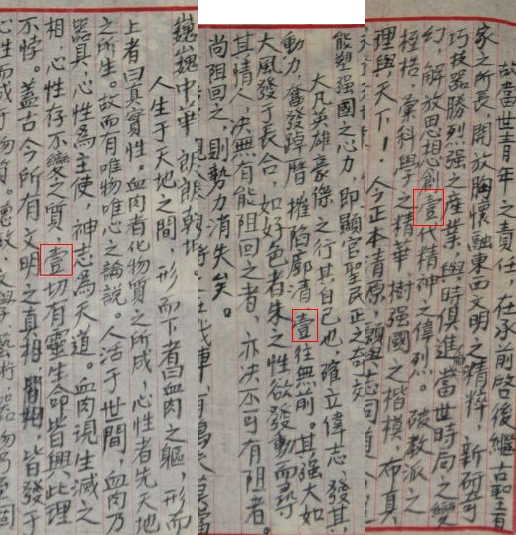 故當世青年之責任,在承前啓後繼古聖百
家之所長,開放胸懷融東西文明之精粹,新研奇
巧技器勝列强之産業,與時俱進當世時局之變
幻,解放思想創壹代精神之偉烈。破教派之
桎梏,彙科學之精華,樹强國之楷模,布真
理與天下!今正本清原,願與志同道
能塑强國之心力,即顯官聖民正之奇効
大凡英雄豪傑之行其自己也,確立偉志,發其
動力,奮發踔厲摧陷廓清壹往無前。其强大如
大風發于長合,如好色者朱之性欲發動而尋
其情人,决無有能阻回之者,亦决不可有阻者。
尚阻回之,則勢力消失矣。
巍巍中華 朗朗乾坤
人生于天地之間,形而下者曰血肉之軀,形而
上者曰真實性。血肉者化物質之所成,心性者先天地
之所生。故而有唯物唯心之論説。人活于世間,血肉乃
器具,心性為主使,神志為天道。血肉現生滅之
相,心性存不變之質,壹切有靈生命皆與此理
不悖。蓋古今所有文明之真相,皆發于
心性而成于物質。德政、文學、藝術、器物乃至個